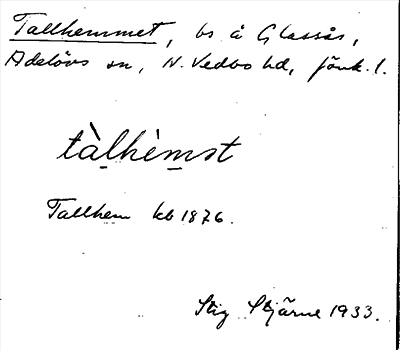 Tallhemmet, bs å Glassås,
Adelövs sn, N. Vedbo hd, Jönk. l.
tàlhèmst
Tallhem kb 1876.
Stig Stjärne 1933.